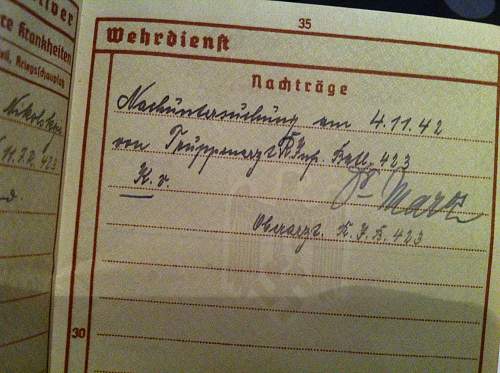 tiver
re Krankheiten
teil. Kriegsschauplatz
Nikolskoje
423
35
Wehrdienst
Nachträge
Nachuntersuchung am 4.11.42
von Truppenarzt Inf. Batl. 423
K.v.
Dr. Mark
Oberarzt. K.J.B. 423
30